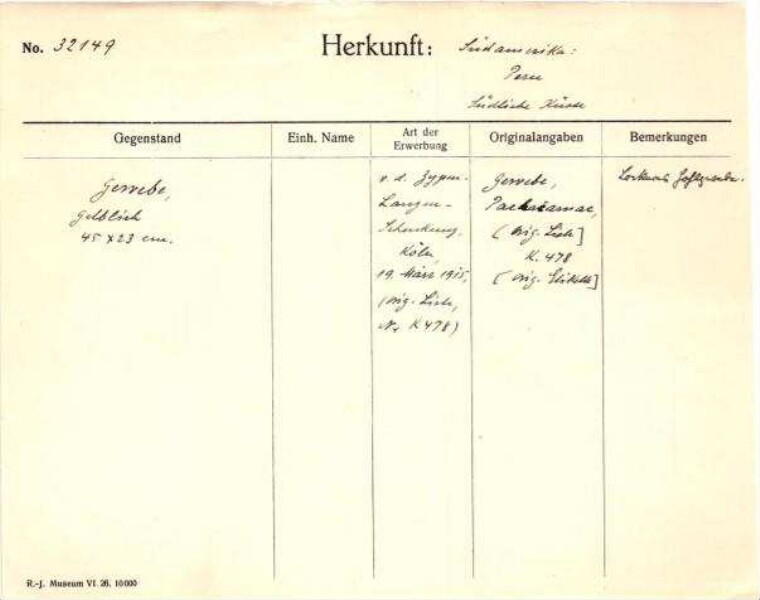 No. 32149
Herkunft:
Südamerika:
Peru
Südliche Küste
Gegenstand
Einh. Name
Art der
Erwerbung
Originalangaben
Bemerkungen
Gewebe,
gelblich
45 x 23 cm.
v. d. Zypen-
Langen-
Schenkung,
Köln,
19. März 1915,
(orig. Liste,
Nr K 478)
Gewebe,
Pachacamac,
(orig. Liste]
K. 478
[orig. Etikette]
Lockeres
R.-J. Museum VI. 26. 10000